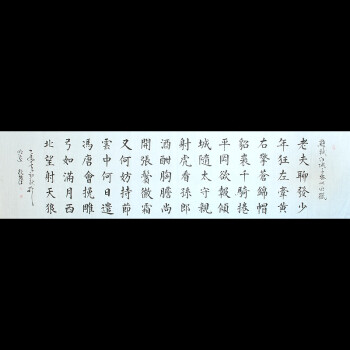 蘇軾江城子密州出獵
老夫聊發少
年狂左牽黃
右擎蒼錦帽
貂裘千騎捲
平岡欲報傾
城隨太守親
射虎看孫郎
酒酣胸膽尚
開張鬢微霜
又何妨持節
雲中何日遣
馮唐會挽雕
弓如滿月西
北望射天狼